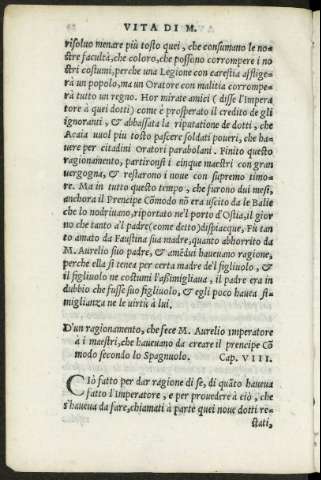 VITA DI M.
risoluo menare più tosto quei, che consumano le no=
stre facultà, che coloro, che possono corrompere i no=
stri costumi, perche una Legione con carestia afflige=
rà un popolo, ma un Oratore con malitia corrompe=
rà tutto un regno. Hor mirate amici (disse l'impera
tore à quei dotti) come è prosperato il credito de gli
ignoranti, & abbassata la riputatione de dotti, che
Acaia uuol piu tosto pascere soldati poueri, che ha=
uere per citadini Oratori parabolani. Finito questo
ragionamento, partironsi i cinque maestri con gran
uergogna, & restarono i noue con supremo timo=
re. Ma in tutto questo tempo, che furono dui mesi,
anchora il Prencipe Cõmodo nõ era uscito da le Balie
che lo nodriuano, riportato ne'l porto d'Ostia, il gior
no che tanto a'l padre (come detto) dispiacque, Fù tan
to amato da Faustina sua madre, quanto abhorrito da
M. Aurelio suo padre, & amẽdui haueuano ragione,
perche ella si tenea per certa madre de'l figliuolo, &
il figliuolo ne costumi l'assimigliaua, il padre era in
dubbio che fusse suo figliuolo, & egli poco hauea si=
miglianza ne le uirtù à lui.
D'un ragionamento, che fece M. Aurelio imperatore
à i maestri, che haueuano da creare il prencipe Cõ
modo secondo lo Spagnuolo. Cap. VIII.
CIò fatto per dar ragione di se, di quãto haueua
fatto l'Imperatore, e per prouedere à ciò, che
s'haueua da fare, chiamati à parte quei noue dotti re=
stati,